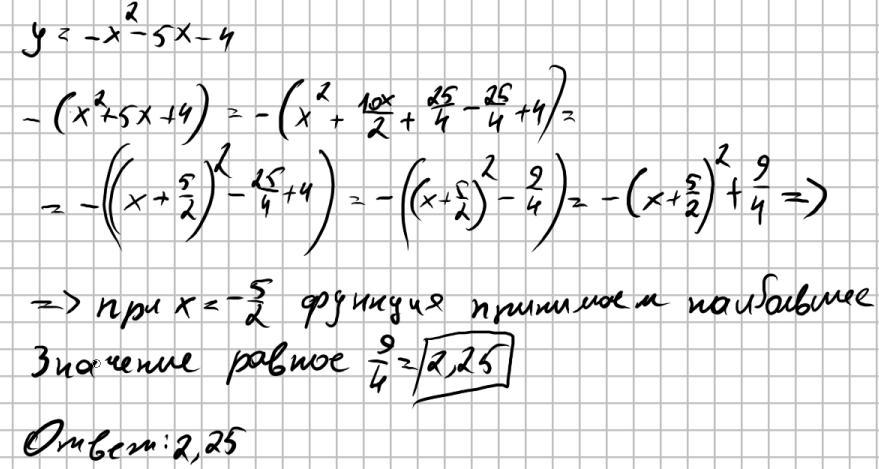 y = -x² - 5x - 4
-(x² + 5x + 4) = -(x² + 10x/2 + 25/4 - 25/4 + 4) =
= -((x + 5/2)² - 25/4 + 4) = -((x + 5/2)² - 9/4) = -(x + 5/2)² + 9/4 =>
=> при x = -5/2 функция принимает наибольшее
значение равное 9/4 = 2,25
Ответ: 2,25